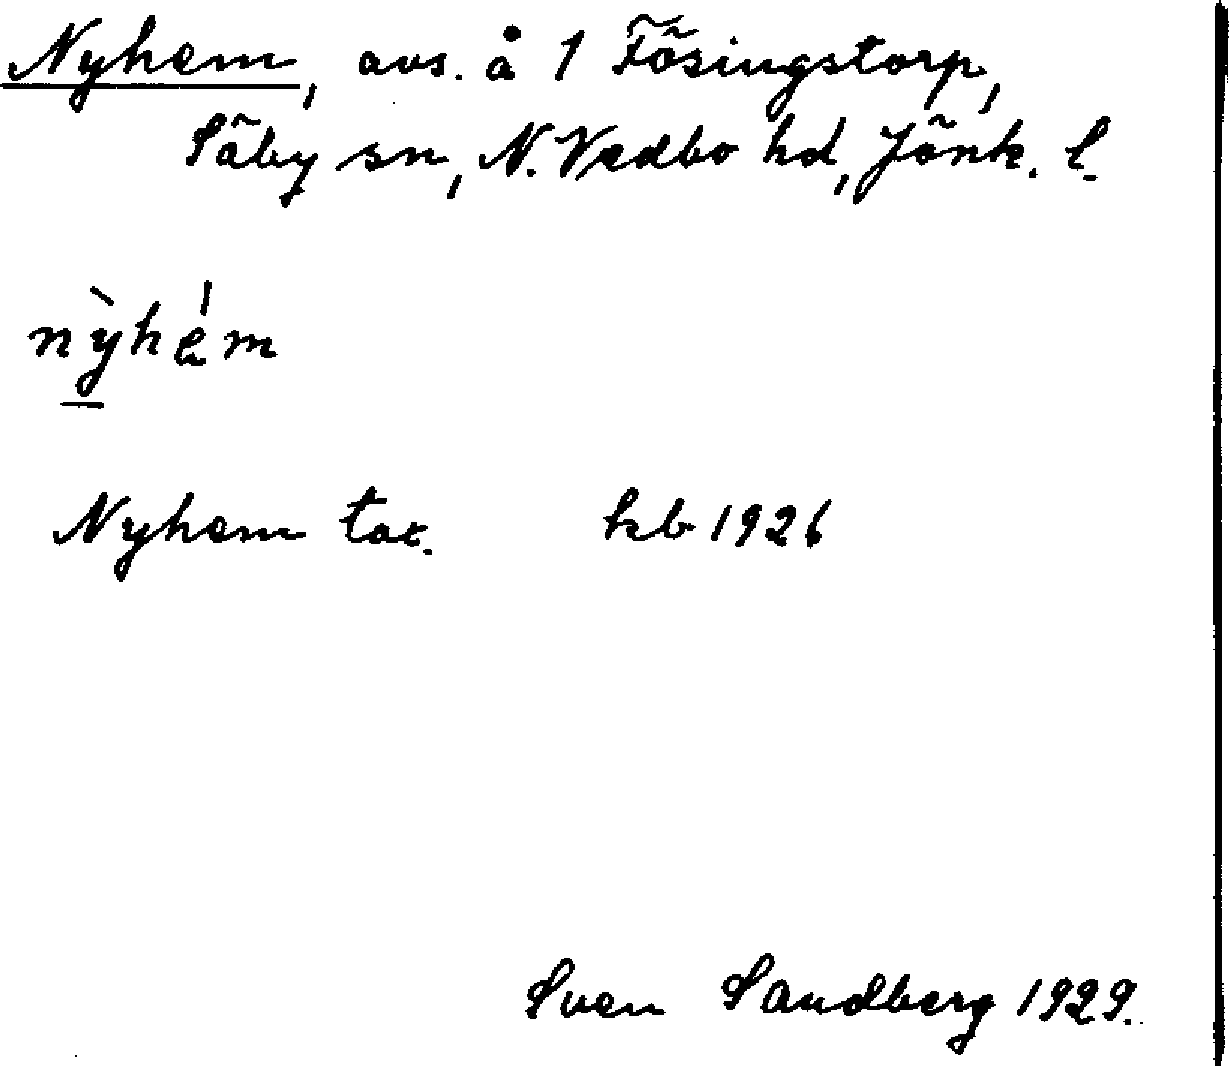 Nyhem, avs. å 1 Fösingstorp,
Säby sn, N. Vedbo hd, Jönk. l.
nỳhém
Nyhem tac. kb 1926
Sven Sandberg 1929.